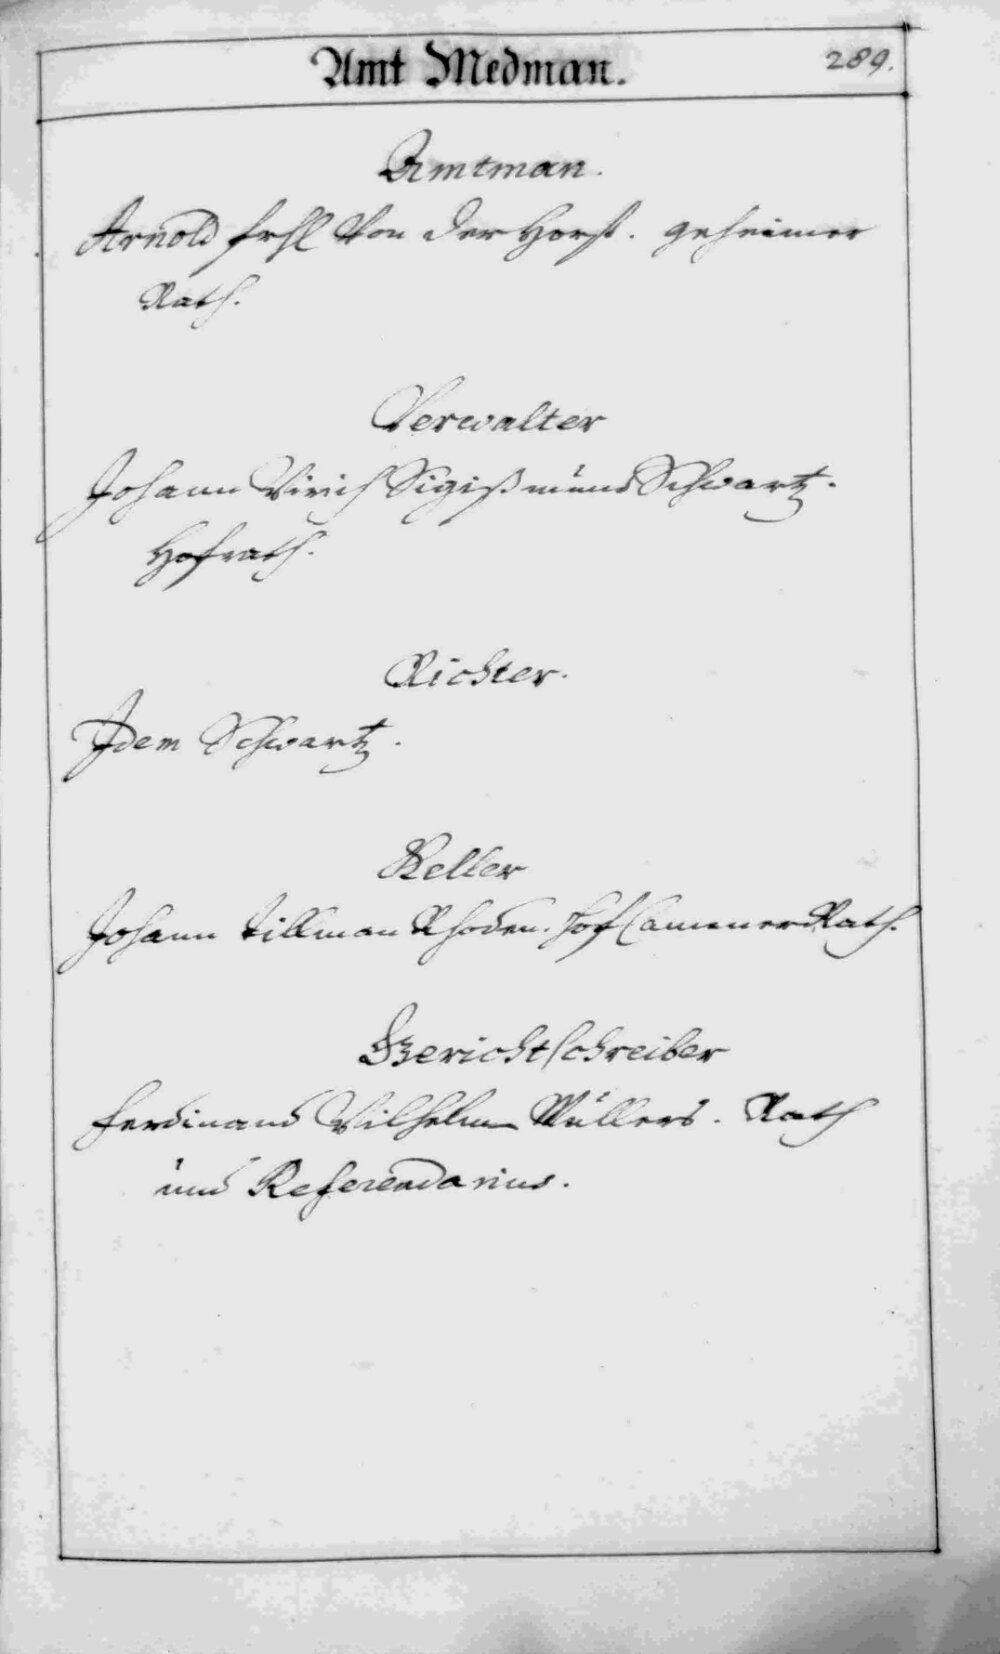 Amt Medman.
289.
Amtman.
Arnold frhl Von der Horst. geheimer
Rath.
Verwalter
Johann Ulrich Sigißmund Schwartz.
Hofrath.
Richter.
Idem Schwartz.
Keller
Johann Tillman Rhoden. Hof Cammer Rath.
Gerichtschreiber
Ferdinand Wilhelm Müllers. Rath
und Referendarius.